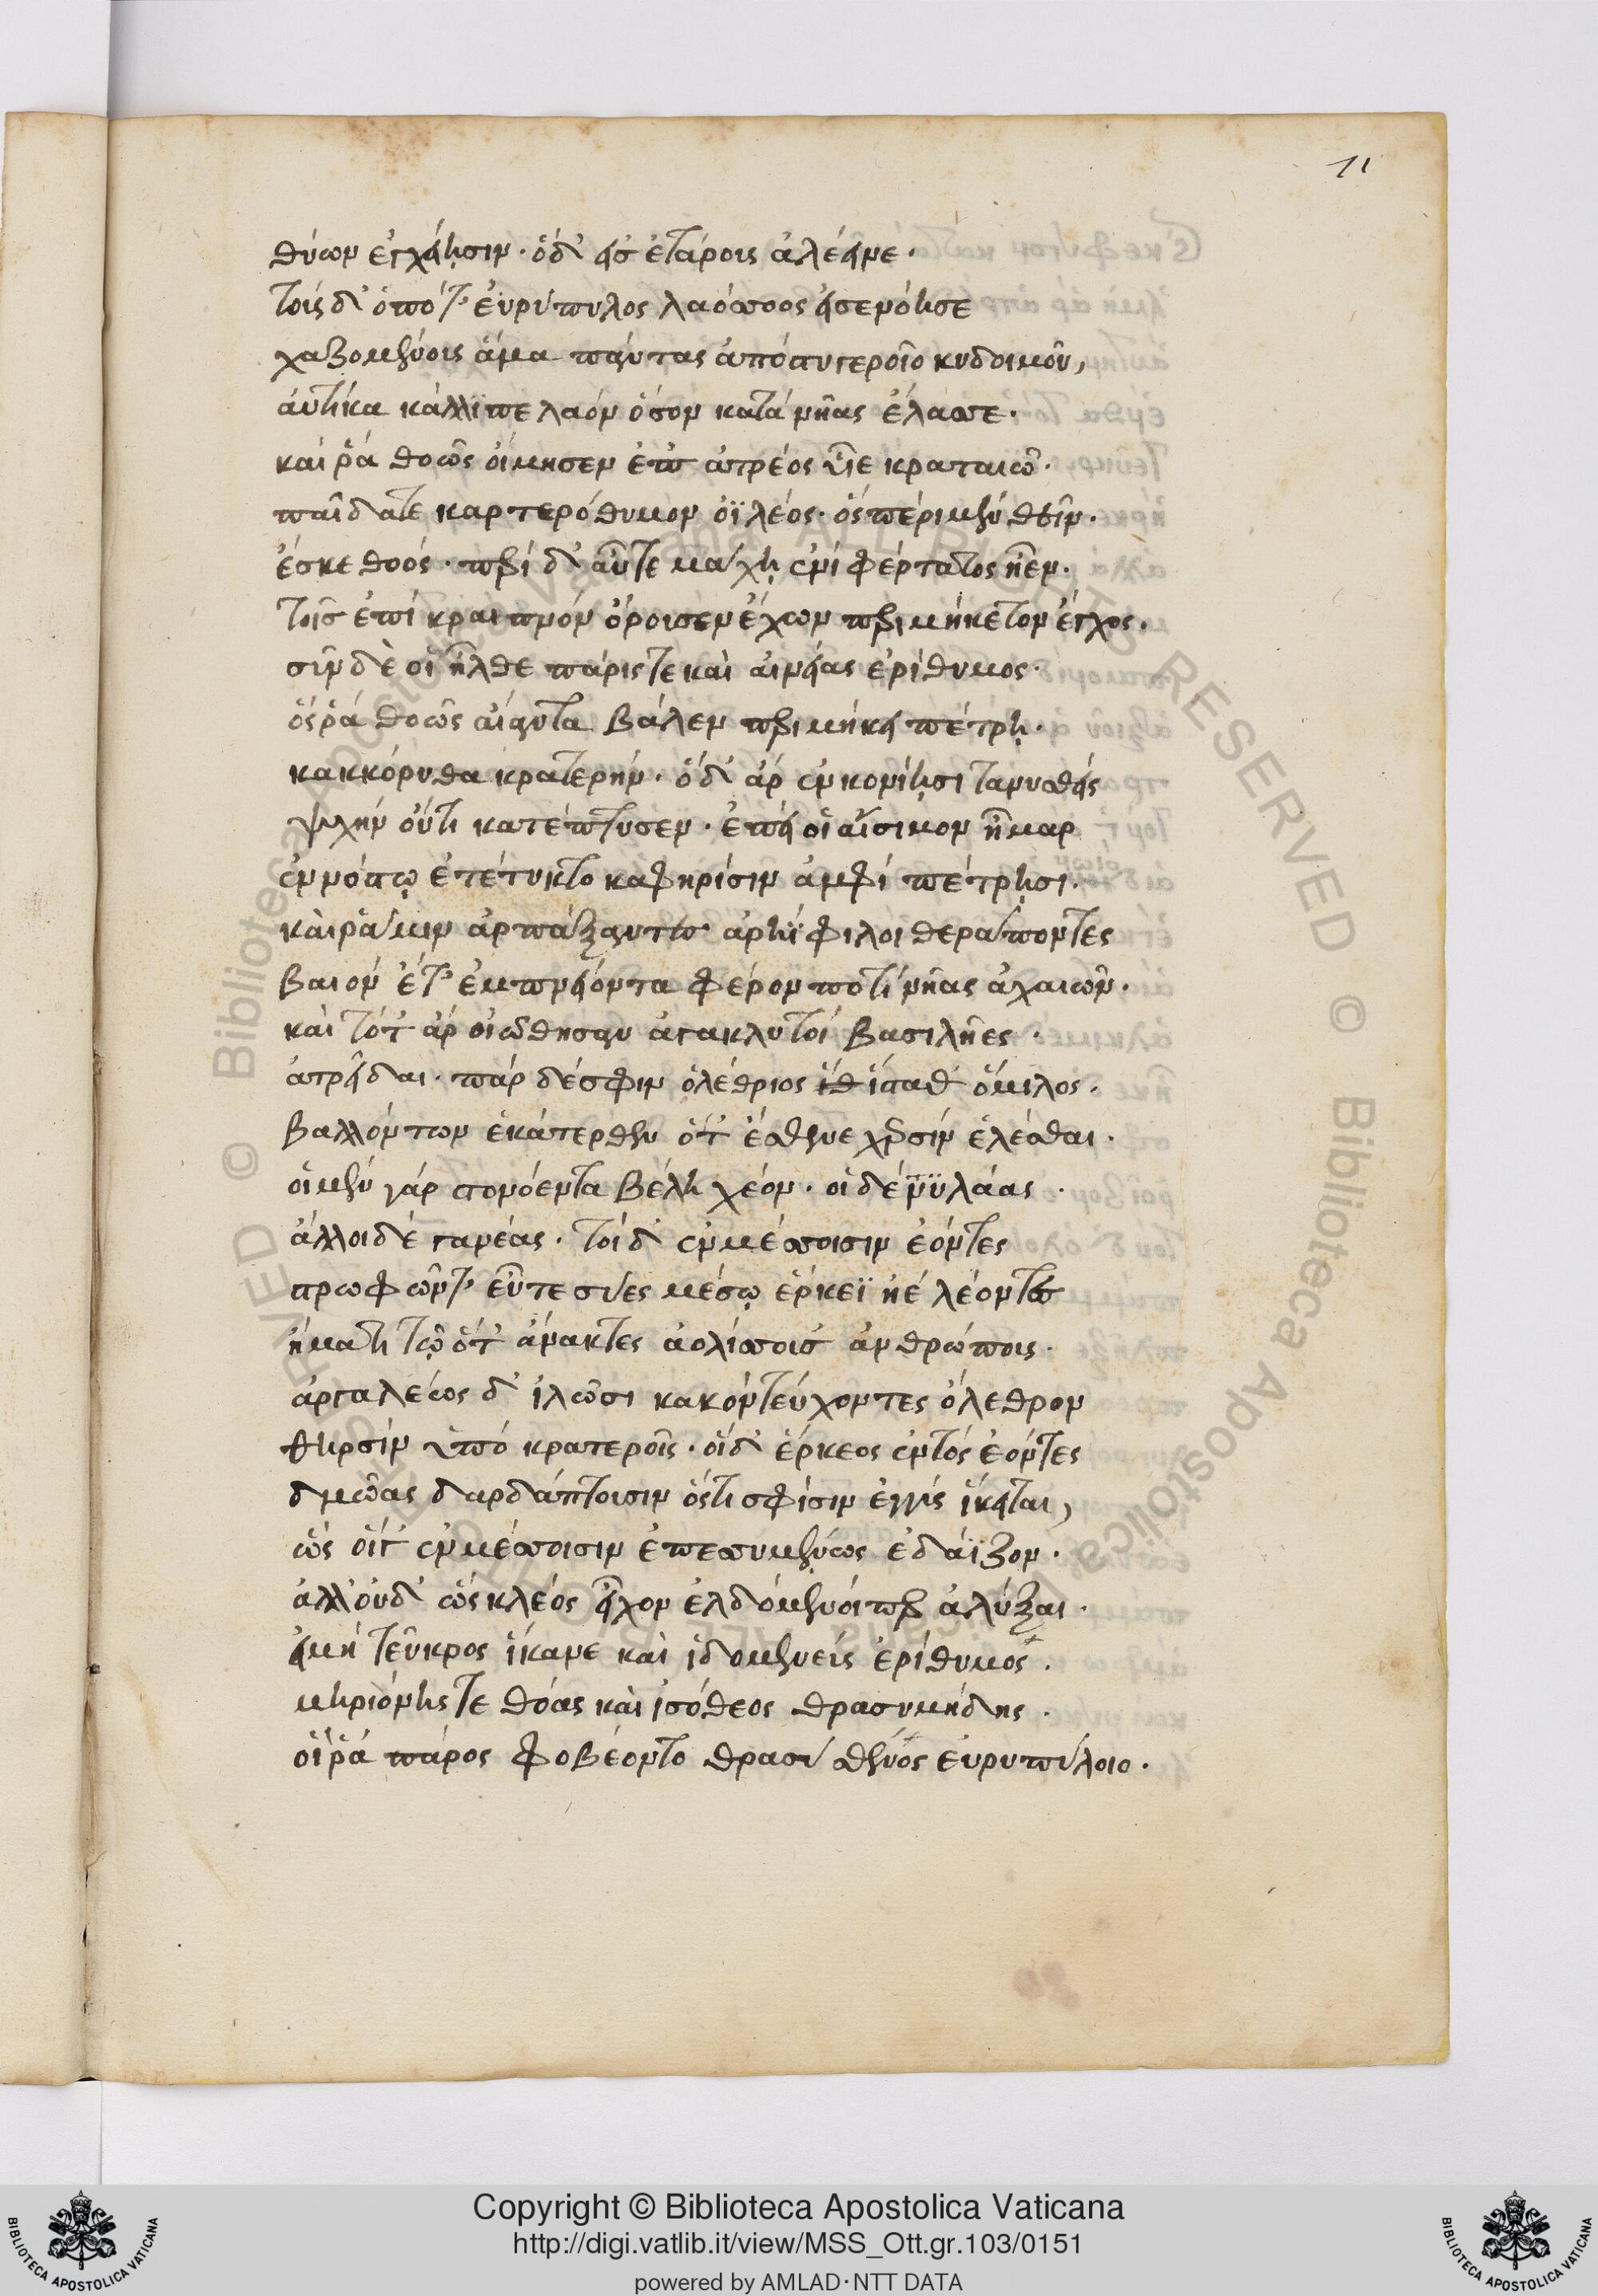 11
θύων ἐγχείησιν· ὁδ' εἰσ ἑτάροις ἀλέεινε·
τοῖς δ' ὁπότ' ἐυρύπυλος λαόσσοος εἰσενόησε
χαζομένοις ἅμα πάντας ἀπὸ στυγεροῖο κυδοιμοῦ,
ἀυτίκα κάλλιπε λαὸν ὅσον κατὰ νῆας ἔλασσε·
καί ῥα θοῶς οἴμησεν ἐπ' ἀτρέος υἷε κραταιώ·
παῖδά τε καρτερόθυμον ὀϊλέος· ὃς πέρι μὲν θεῖν·
ἔσκε θοός· περὶ δ' αὖτε μάχη ἐνὶ φέρτατος ἦεν·
τοῖσ ἐπὶ κραιπνὸν ὄρουσεν ἔχων περιμήκετον ἔγχος·
σὺν δὲ οἱ ἦλθε πάρις τε καὶ αἰνείας ἐρίθυμος·
ὅς ῥα θοῶς αἴαντα βάλεν περιμήκει πέτρη·
κακκόρυθα κρατερήν· ὁ δ' ἀρ ἐν κονίησι τανυσθείς
ψυχὴν οὔτι κατέπτυσεν· ἐπεί οἱ αἴσιμον ἦμαρ
ἐν νόστω ἐτέτυκτο καφηρίσιν ἀμφὶ πέτρησι·
καί ῥά μιν ἁρπάξαντεσ ἀρηΐφιλοι θεράποντες
βαιὸν ἔτ' ἐμπνείοντα φέρον ποτὶ νῆας ἀχαιῶν·
καὶ τότ' ἀρ οἰώθησαν ἀγακλυτοὶ βασιλῆες·
ἀτρεῖδαι· πὰρ δέ σφιν ὀλέθριος ἵσταθ' ὅμιλος·
βαλλόντων ἑκάτερθεν ὅτ' ἔσθενε χερσὶν ἑλέσθαι·
οἱ μὲν γὰρ στονόεντα βέλη χέον· οἱ δέ νυ λάας·
ἄλλοι δὲ γανέας· τοὶ δ' ἐν μέσσοισιν ἐόντες
στρωφῶντ' εὖτε σύες μέσω ἕρκεϊ ἠὲ λέοντεσ
ἤματι τῶ ὅτ' ἄνακτες ἀολίσσοισ' ἀνθρώποις·
ἀργαλέως δ' ἰλῶσι κακὸν τεύχοντες ὄλεθρον
θηρσὶν ὑπὸ κρατεροῖς· οἱ δ' ἕρκεος ἐντὸς ἐόντες
δμῶας δαρδάπτοισιν ὅς τι σφίσιν ἐγγὺς ἵκηται,
ὣς οἵγ' ἐν μέσσοισιν ἐπεσσυμένως ἐδάϊζον·
ἀλλ' οὐδ' ὣς κλέος εἶχον ἐλδόμενοί περ ἀλύξαι·
εἰ μὴ τεῦκρος ἵκανε καὶ ἰδομενεύς ἐρίθυμος·
μηριόνης τε θόας καὶ ἰσόθεος θρασυμήδης·
οἵ ῥα πάρος φοβέοντο θρασὺ σθένος ἐυρυπύλοιο·
Copyright © Biblioteca Apostolica Vaticana
http://digi.vatlib.it/view/MSS_Ott.gr.103/0151
powered by AMLAD·NTT DATA